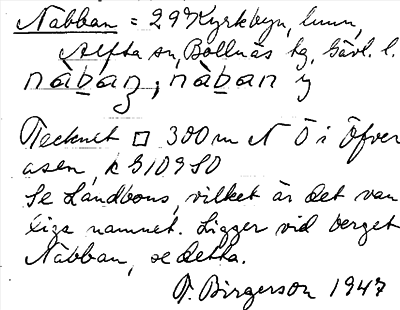 Nabban = 29 Kyrkbyn, lunn,
Alfta sn, Bollnäs hg, Gävl. l.
nàbaṉ, nàban y
Tecknet □ 300 m N Ö i Öfver
asen, k 3109 SO
Se Landbons, vilket är det van
liga namnet. Ligger vid berget
Nabban, se detta.
F. Birgerson 1947